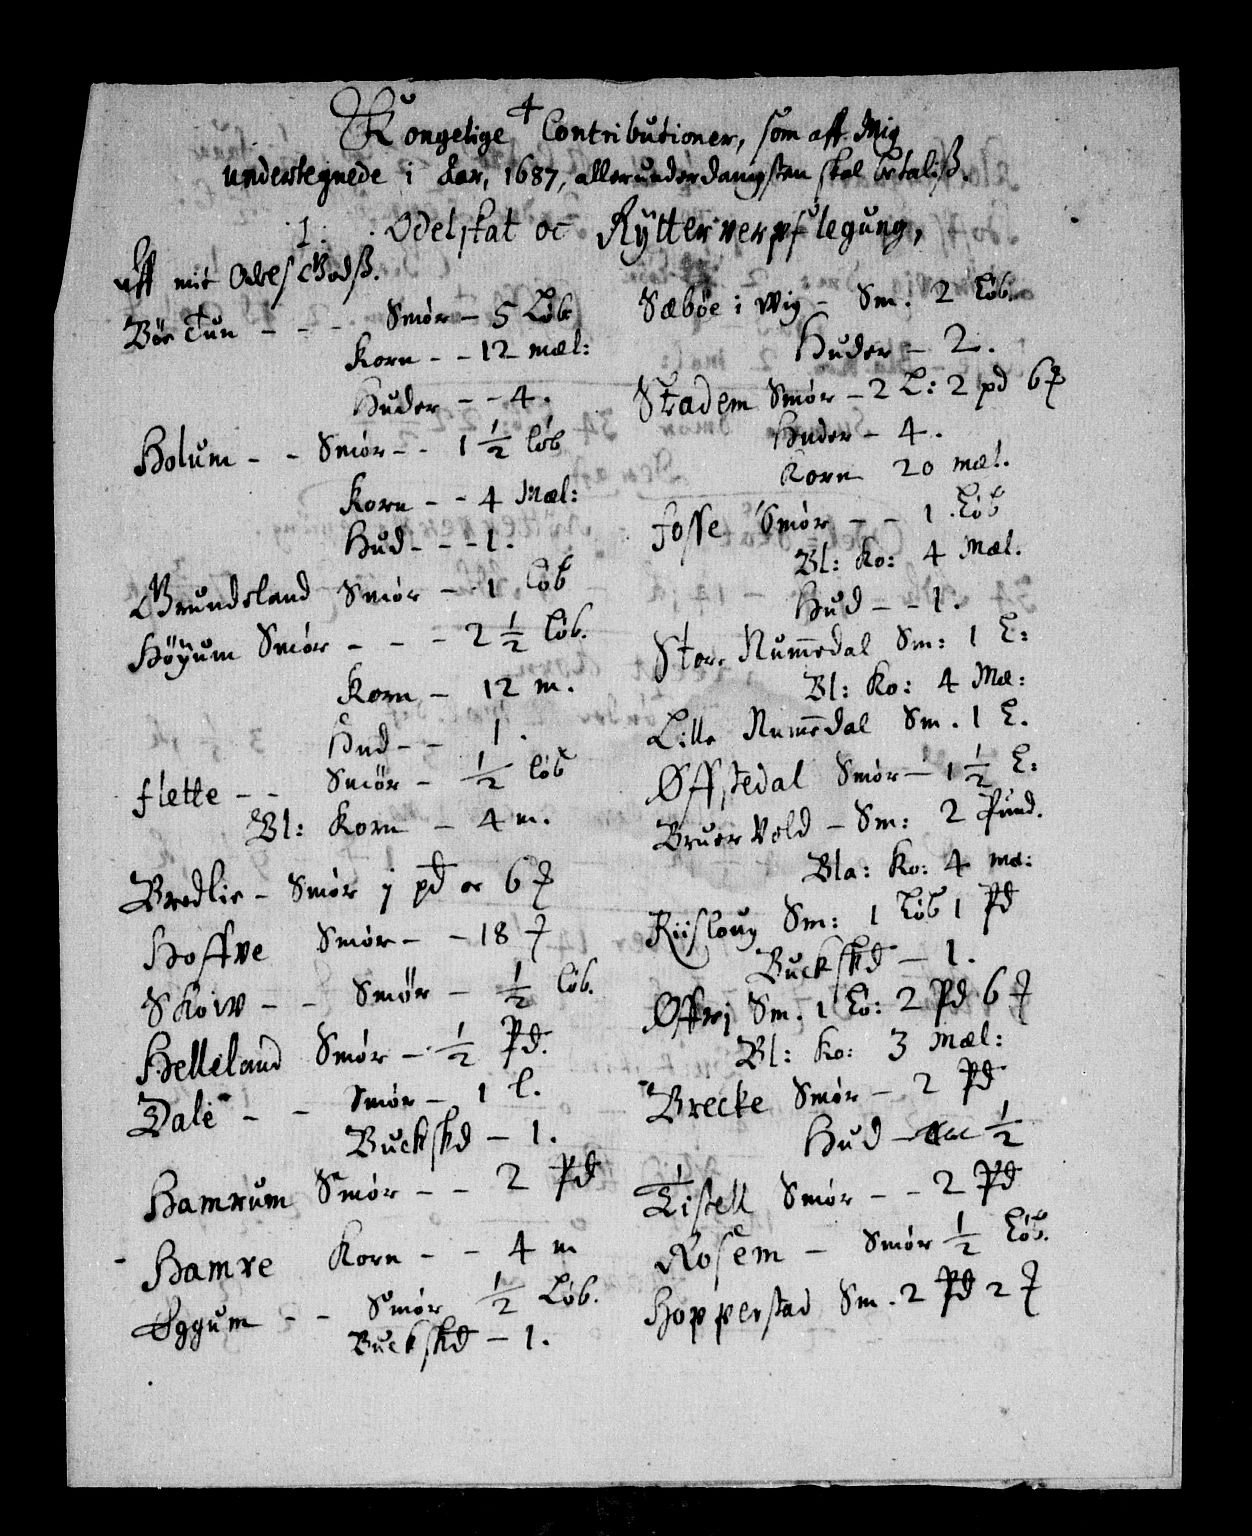 4
Kongelige Contributioner, som aff Mig
understegnede i Aar, 1687, allerunderdanigsten skal betaliß.
1. Odelskat oc Rÿtterverpflegung,
Aff mit Odels Godß.
Böe Tun - - - Smör - 5 Löb
Korn - - 12 mæl:
Huder - - 4.
Holum - - Smör - - 1 1/2 löb
Korn - - 4 Mæl:
Hud - - - 1.
Grundeland Smör - 1 löb
Höÿum Smör - - - 2 1/2 löb.
Korn - 12 m.
Hud - - 1.
flette - - Smör - 1/2 löb
Bl: Korn - 4 m.
Bredlie - Smör j pd oc 6 ℔
Hoffve Smör - - 18 ℔
Skow - - Smör - 1/2 löb.
Helleland Smör - 1/2 Pd.
Dale - - Smör - 1 l.
Buckskd - 1.
Hamrum Smör - - 2 Pd
Hamre Korn - - 4 m
Eggum - - Smör 1/2 Löb.
Buckskd - 1.
Sæböe i Wig - Sm. 2 Löb.
Huder - 2.
Stadem Smör - 2 L: 2 pd 6 ℔
Huder - 4.
Korn 20 mæl.
Fosse Smör - - 1 Löb
Bl: Ko: 4 Mæl.
Hud - - 1.
Store Num̅edal Sm: 1 L:
Bl: Ko: 4 Mæ:
Lille Num̅edal Sm. 1 L.
Øffstedal Smör - 1 1/2 L:
Bruer Vold - Sm: 2 Pund.
Bla: Ko: 4 mæ:
Riisloug Sm: 1 Löb 1 Pd
Buckskd - 1.
Øffri Sm. 1 Lö: 2 Pd 6 ℔
Bl: Ko: 3 Mæl:
Brecke Smör - 2 Pd
Hud - 1/2
Tistell Smör - - 2 Pd
Rosem - Smör 1/2 Löb.
Hopperstad Sm. 2 Pd 2 ℔